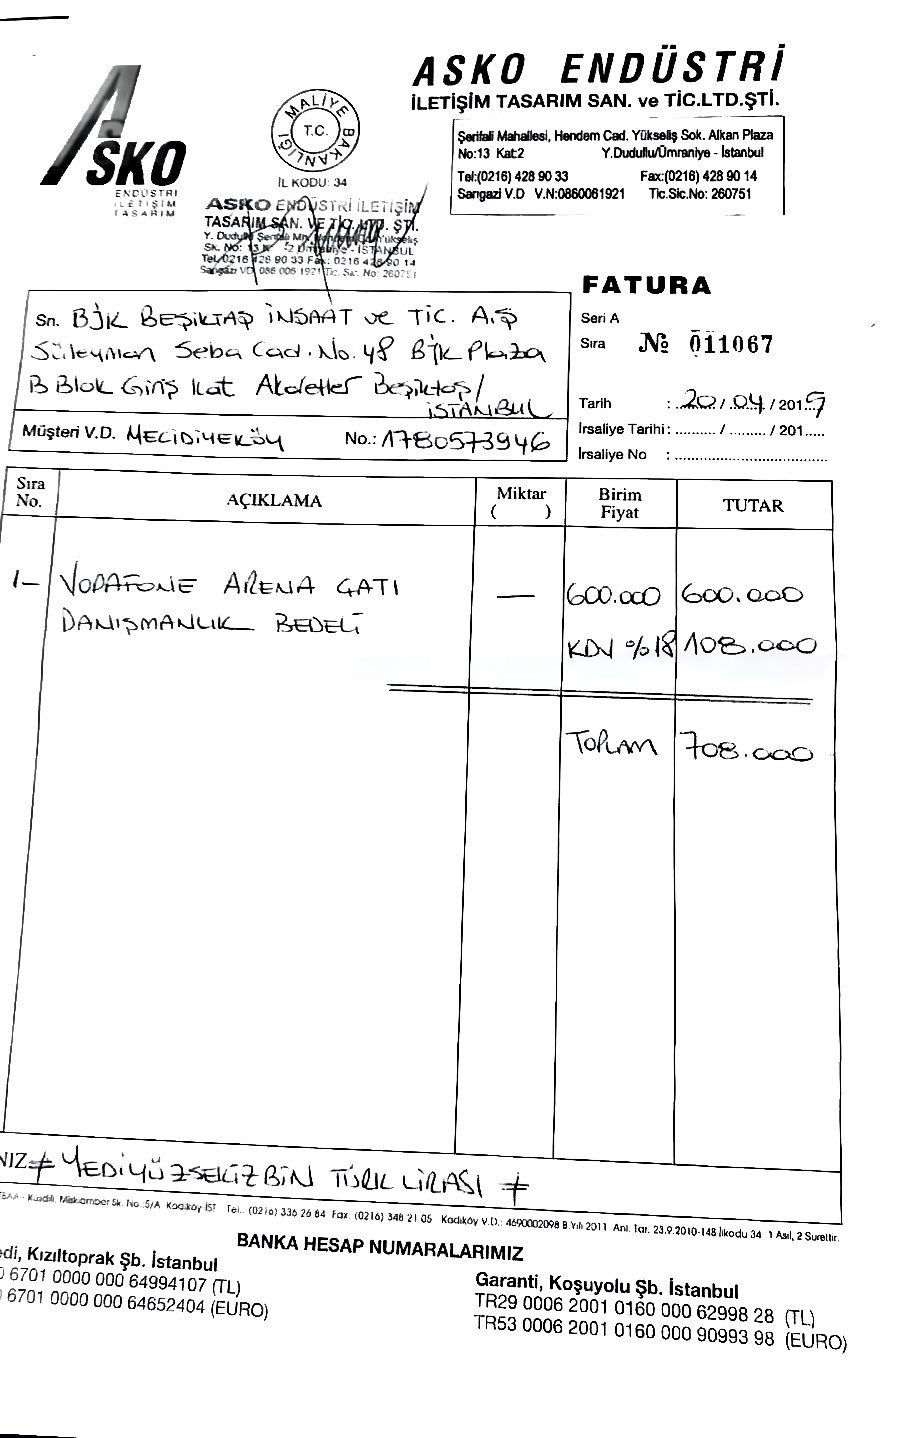 ASKO
ENDÜSTRİ
İLETİŞİM
TASARIM
T.C. MALİYE BAKANLIĞI
İL KODU: 34
ASKO ENDÜSTRİ İLETİŞİM
TASARIM SAN. VE TİC. LTD. ŞTİ.
Tel: 0216 428 90 33 Fax: 0216 428 90 14
Sarıgazi VD. 086 006 1921 Tic. Sic. No: 260751
ASKO ENDÜSTRİ
İLETİŞİM TASARIM SAN. ve TİC.LTD.ŞTİ.
Şerifali Mahallesi, Hendem Cad. Yükseliş Sok. Alkan Plaza
No:13 Kat:2 Y.Dudullu/Ümraniye - İstanbul
Tel:(0216) 428 90 33 Fax:(0216) 428 90 14
Sarıgazi V.D V.N:0860061921 Tic.Sic.No: 260751
FATURA
Seri A
Sıra № 011067
Sn. BJK BEŞİKTAŞ İNŞAAT ve TİC. A.Ş
Süleyman Seba Cad. No.48 BJK Plaza
B Blok Giriş Kat Akaretler Beşiktaş/
İSTANBUL
Müşteri V.D. MECİDİYEKÖY No.: 1780573946
Tarih : 20/04/2015
İrsaliye Tarihi: ......... / ......... / 201.....
İrsaliye No : ...................................
Sıra No. AÇIKLAMA Miktar ( ) Birim Fiyat TUTAR
1- VODAFONE ARENA ÇATI — 600.000 600.000
DANIŞMANLIK BEDELİ
KDV %18 108.000
TOPLAM 708.000
NIZ # YEDİYÜZSEKİZBİN TÜRK LİRASI #
Kadıköy İST Tel.: (0216) 336 26 84 Fax: (0216) 348 21 05 Kadıköy V.D.: 4690002098 B.Yılı 2011 Anl. Tar. 23.9.2010-148 İlkodu 34 1 Asıl, 2 Surettir.
BANKA HESAP NUMARALARIMIZ
edi, Kızıltoprak Şb. İstanbul
0 6701 0000 000 64994107 (TL)
0 6701 0000 000 64652404 (EURO)
Garanti, Koşuyolu Şb. İstanbul
TR29 0006 2001 0160 000 62998 28 (TL)
TR53 0006 2001 0160 000 90993 98 (EURO)